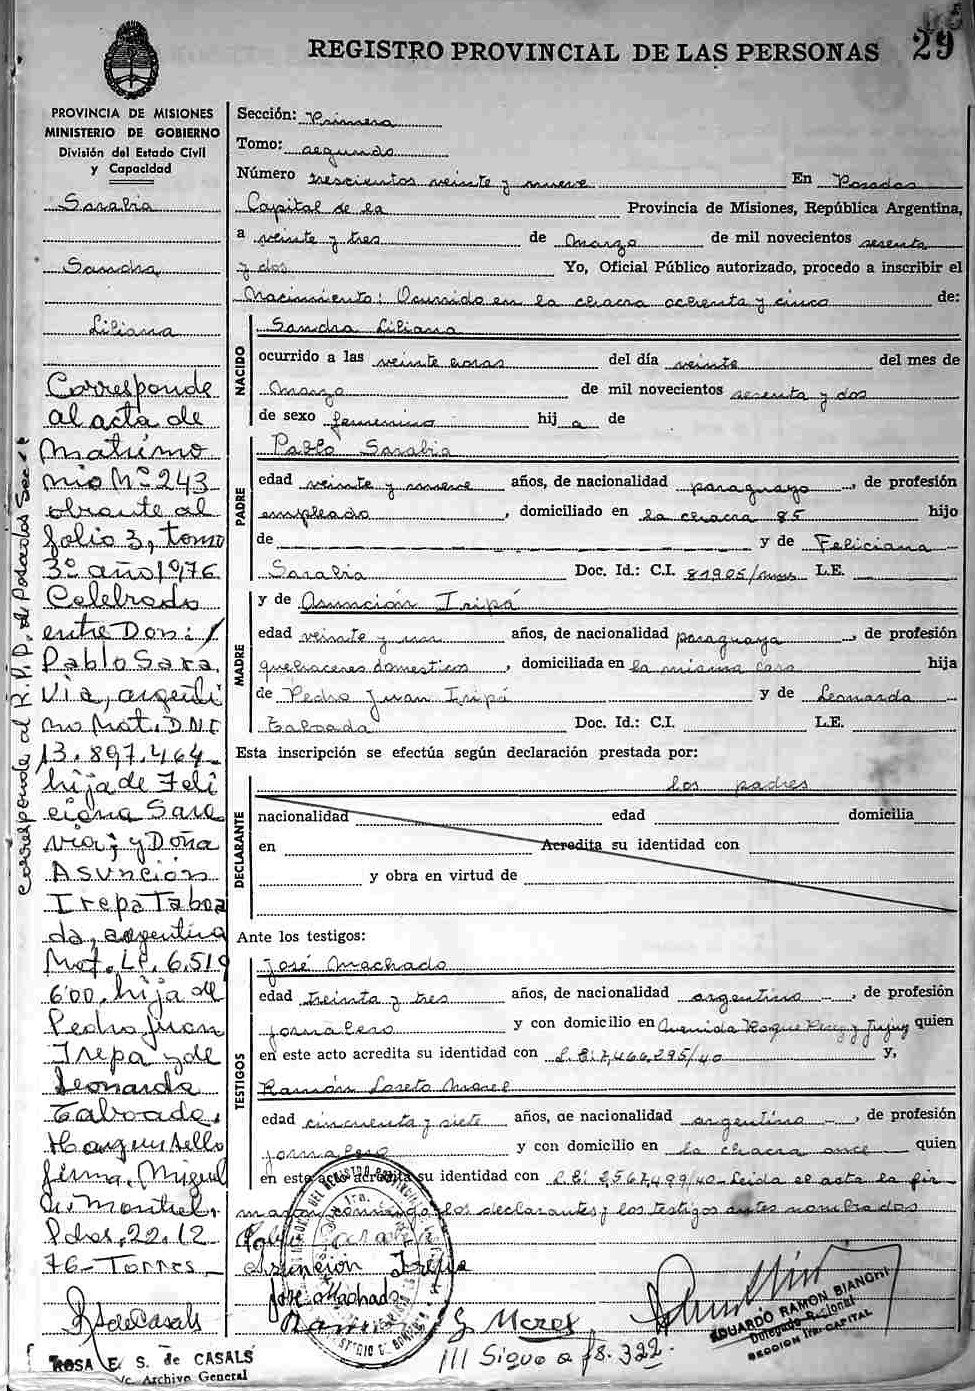 REGISTRO PROVINCIAL DE LAS PERSONAS
29
PROVINCIA DE MISIONES
MINISTERIO DE GOBIERNO
División del Estado Civil
y Capacidad
Sarabia
Sandra
Liliana
Corresponde
al acta de
Matrimo
nio Nº 243
obrante al
folio 3, tomo
3º año 1976
Celebrado
entre Don: /
Pablo Sara
via, argenti
no Mat. DNI
13.897.464
hijo de Feli
ciana Sara
via; y Doña
Asunción
Irepa Taboa
da, argentina
Mat. LC. 6.519
600. hija de
Pedro Juan
Irepa y de
Leonarda
Taboada.
Hay un sello
firma. Miguel
A. Montiel.
Pdas, 22.12
76 - Torres
Corresponde al R.P.P. de Posadas Secc. 1ª
ROSA E. S. de CASALS
Archivo General
Sección: Primera
Tomo: segundo
Número trescientos veinte y nueve En Posadas
Capital de la Provincia de Misiones, República Argentina,
a veinte y tres de Marzo de mil novecientos sesenta
y dos Yo, Oficial Público autorizado, procedo a inscribir el
Nacimiento: Ocurrido en la chacra ochenta y cinco de:
NACIDO
Sandra Liliana
ocurrido a las veinte horas del día veinte del mes de
Marzo de mil novecientos sesenta y dos
de sexo femenino hij a de
PADRE
Pablo Sarabia
edad veinte y nueve años, de nacionalidad paraguayo, de profesión
empleado, domiciliado en la chacra 85 hijo
de y de Feliciana
Sarabia Doc. Id.: C.I. 81905/ L.E.
MADRE
y de Asunción Iripá
edad veinte y un años, de nacionalidad paraguaya, de profesión
quehaceres domesticos, domiciliada en la misma casa hija
de Pedro Juan Iripá y de Leonarda
Taboada Doc. Id.: C.I. L.E.
Esta inscripción se efectúa según declaración prestada por:
DECLARANTE
los padres
nacionalidad edad domicilia
en Acredita su identidad con
y obra en virtud de
Ante los testigos:
TESTIGOS
José Machado
edad treinta y tres años, de nacionalidad argentino, de profesión
jornalero y con domicilio en Avenida Roque Perez y Jujuy quien
en este acto acredita su identidad con L.E. 7,466,295/40 y,
Ramón Loreto Morel
edad cincuenta y siete años, de nacionalidad argentino, de profesión
jornalero y con domicilio en la chacra once quien
en este acto acredita su identidad con L.E. 2567,499/40- Leida el acta la fir
maron conmigo los declarantes y los testigos antes nombrados
Pablo Sarabia
Asunción Irepa
José Machado
Ramon G Morel
/// Sigue a fs. 322.
EDUARDO RAMON BIANCHI
Delegado Seccional
SECCION 1ra. CAPITAL